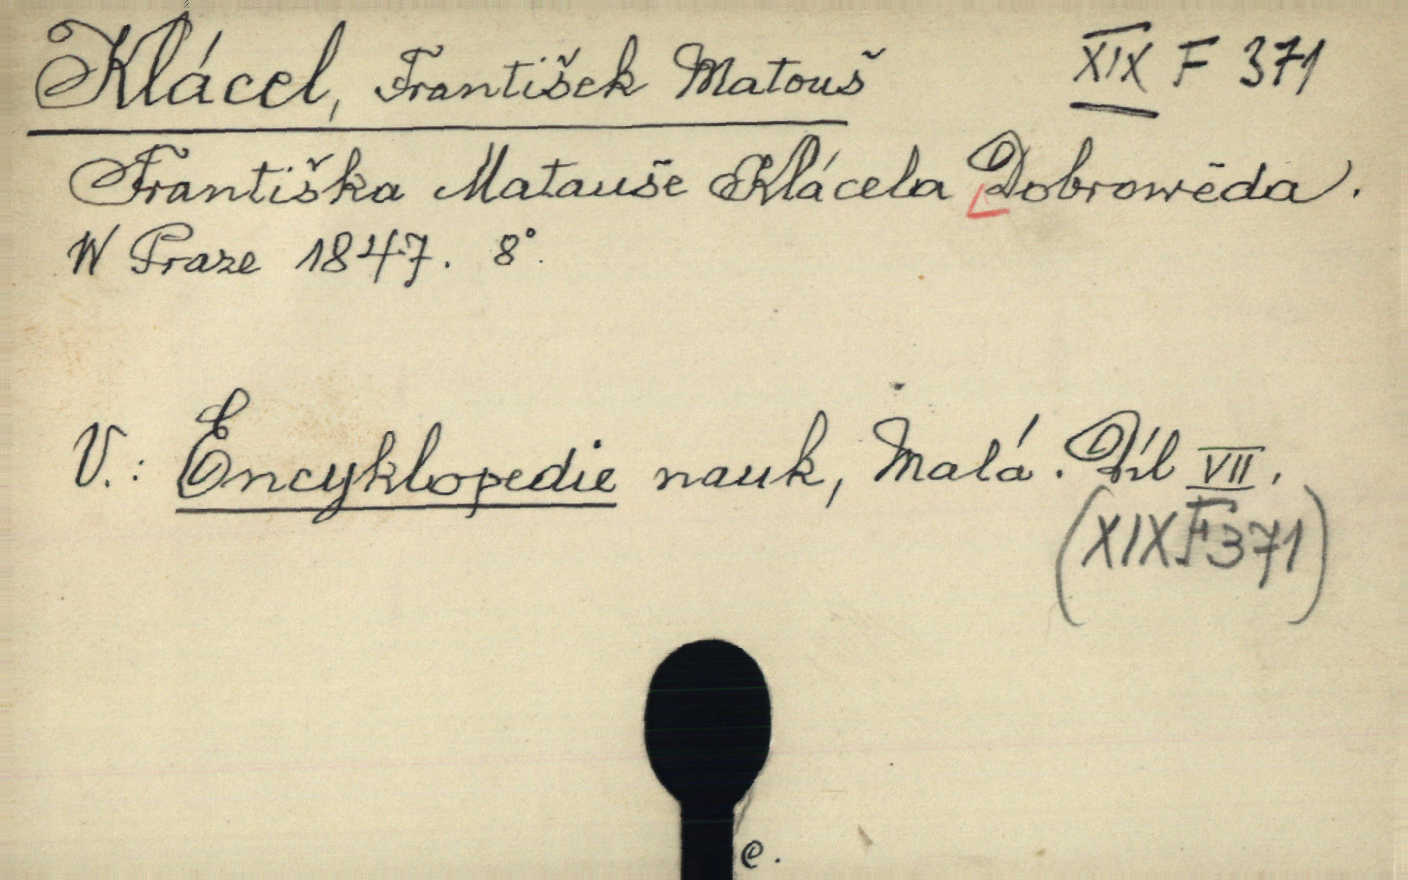 Klácel, František Matouš XIX F 371
Františka Matauše Klácela Dobrowěda.
W Praze 1847. 8°.
V.: Encyklopedie nauk, Malá. Díl VII.
(XIX F 371)
e.